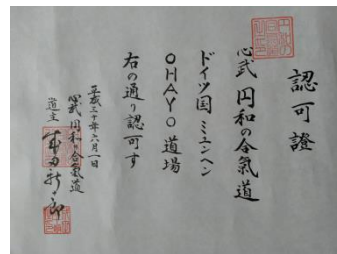 認可證
心武 円和の合氣道
ドイツ国 ミュンヘン
OHAYO 道場
右の通り認可す
平成三十年六月一日
心武 円和の合氣道
道主